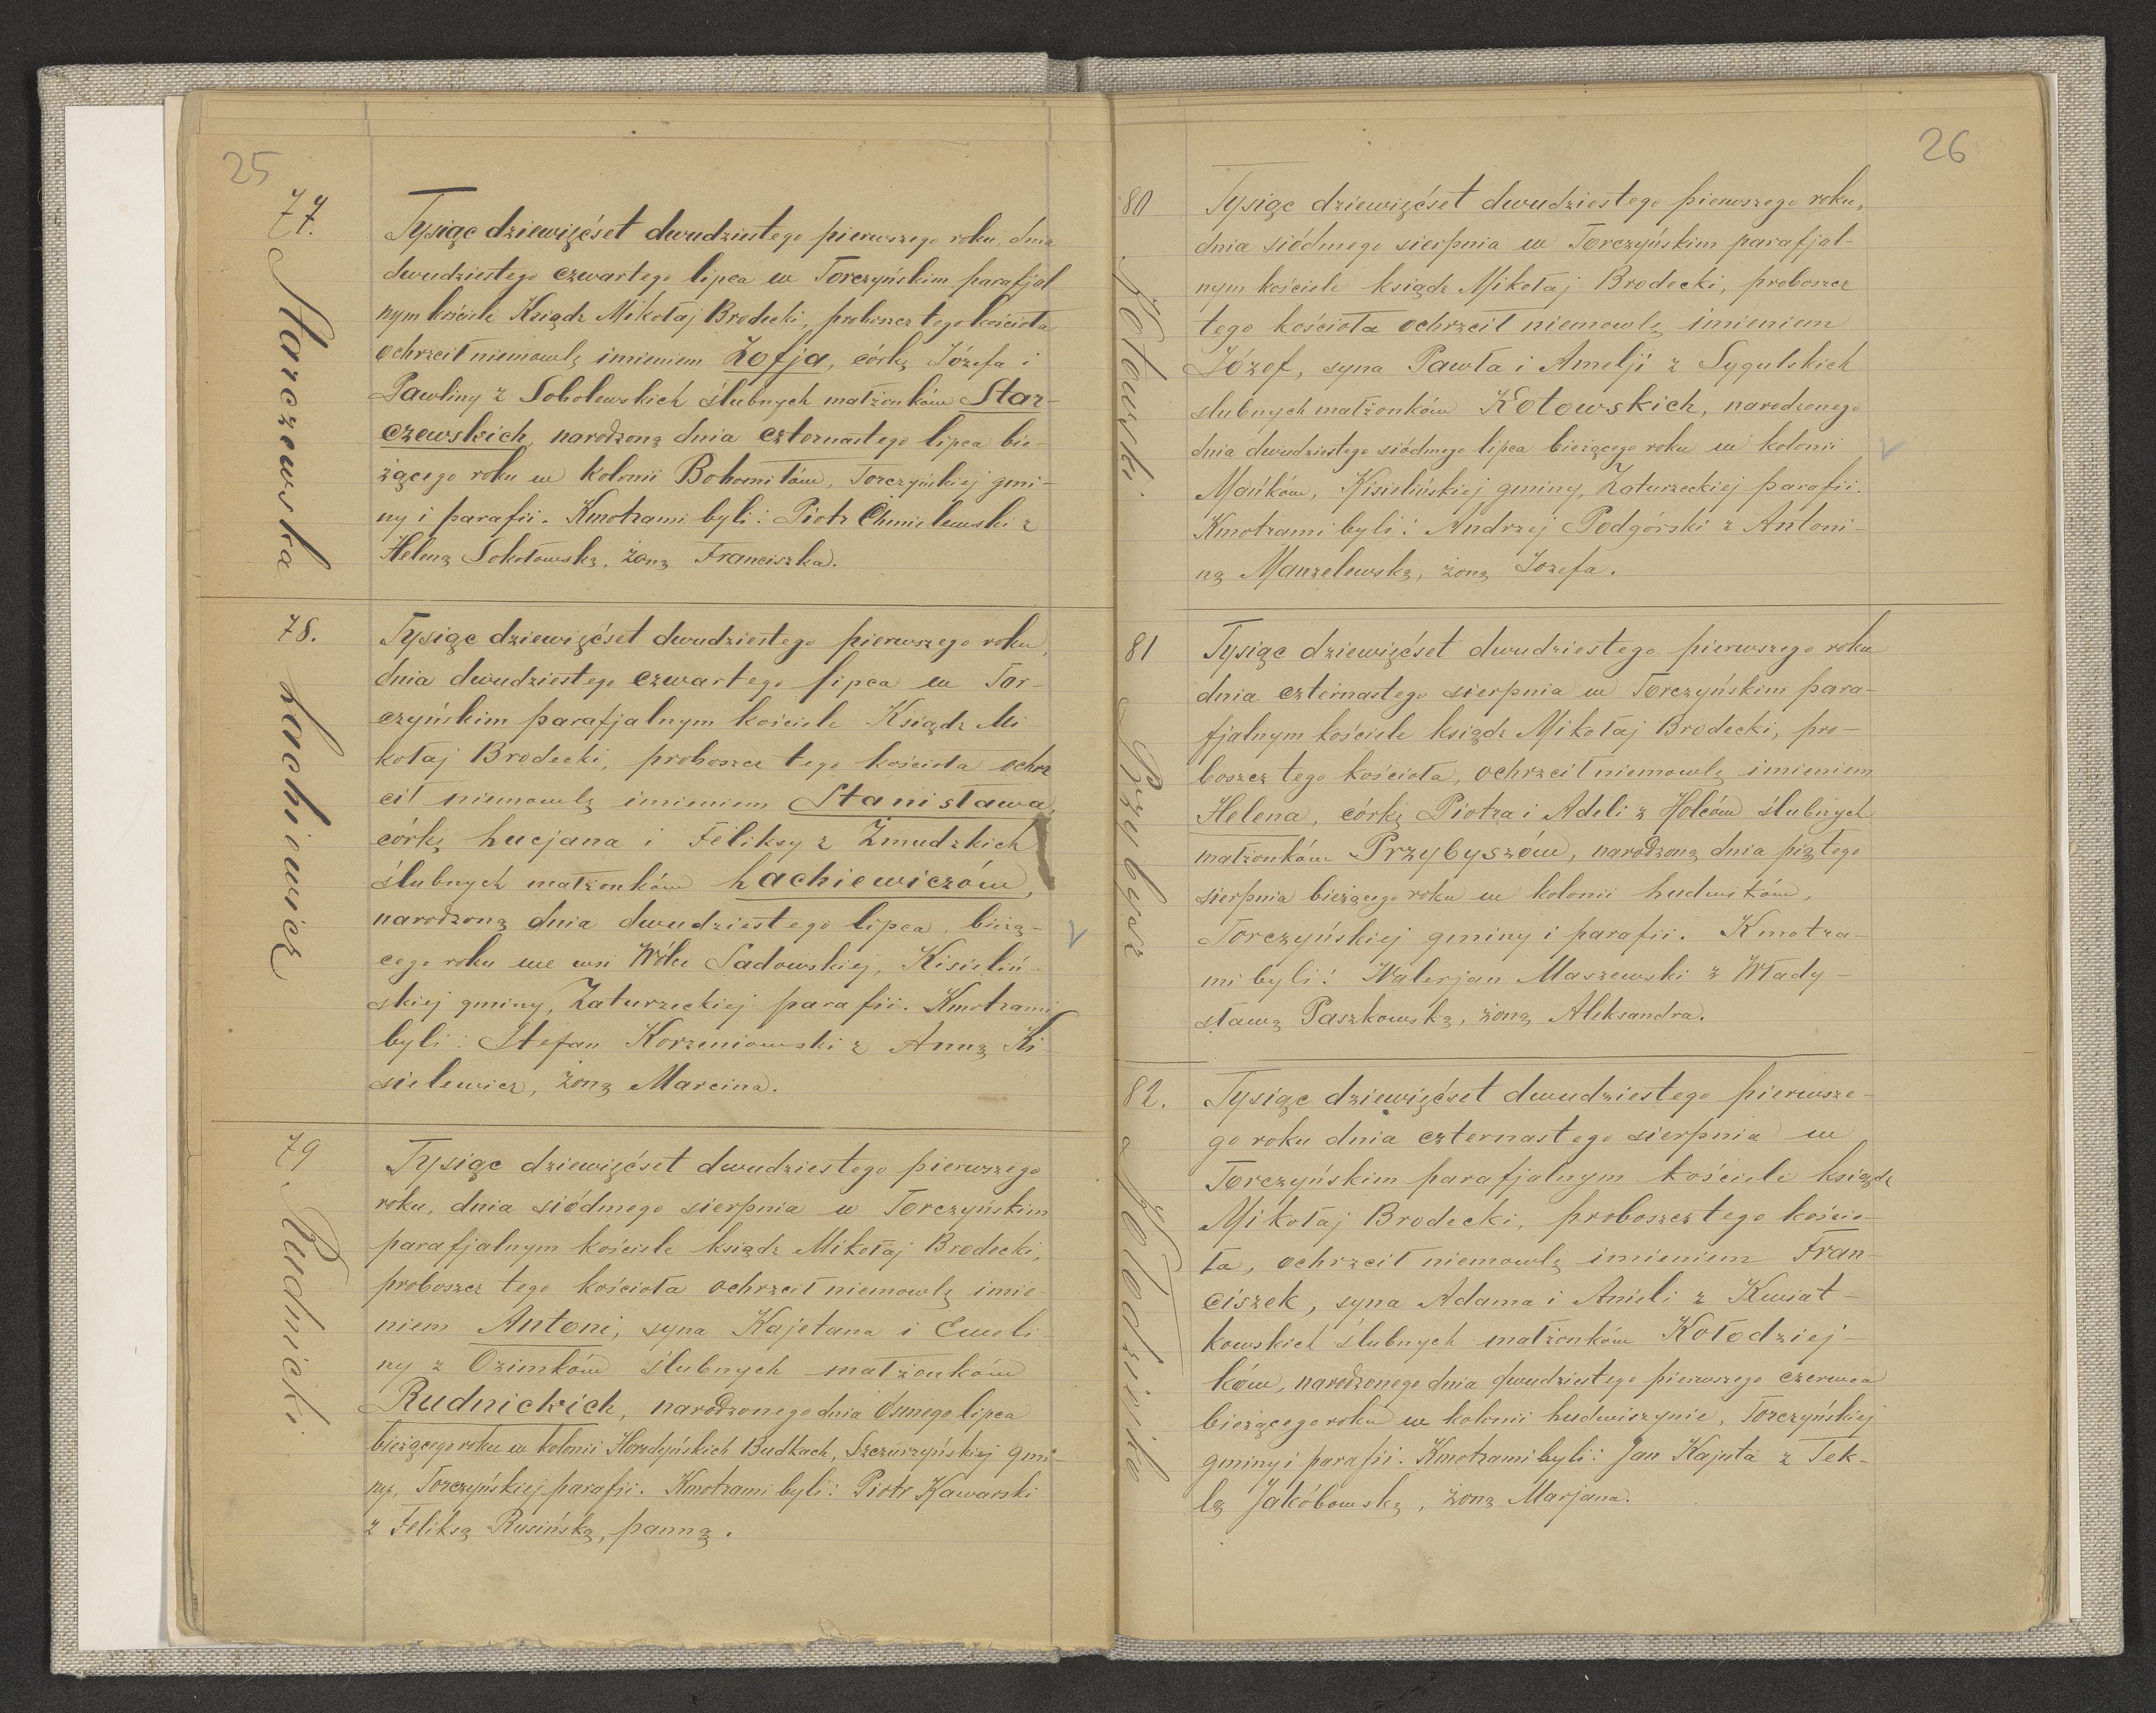 25
77.
Starczewska
Tysiąc dziewięćset dwudziestego pierwszego roku, dnia
dwudziestego czwartego lipca w Torczyńskim parafjal
nym kościele Ksiądz Mikołaj Brodecki, proboszcz tego kościoła
ochrzcił niemowlę imieniem Zofja, córkę Józefa i
Pawliny z Sobolewskich ślubnych małżonków Star-
czewskich, narodzoną dnia czternastego lipca bie-
żącego roku w kolonii Bohomiłów, Torczyńskiej gmi-
ny i parafii. Kmotrami byli: Piotr Chmielewski z
Heleną Sokołowską, żoną Franciszka.
78.
Lachiewicz
Tysiąc dziewięćset dwudziestego pierwszego roku,
dnia dwudziestego czwartego lipca w Tor-
czyńskim parafjalnym kościele Ksiądz Mi-
kołaj Brodecki, proboszcz tego kościoła ochrz
cił niemowlę imieniem Stanisława,
córkę Lucjana i Feliksy z Żmudzkich
ślubnych małżonków Lachiewiczów,
narodzoną dnia dwudziestego lipca, bieżą-
cego roku we wsi Wólce Sadowskiej, Kisieliń-
skiej gminy, Zaturzeckiej parafii. Kmotrami
byli: Stefan Korzeniowski z Anną Ki-
sielewicz, żoną Marcina.
79
Rudnicki.
Tysiąc dziewięćset dwudziestego pierwszego
roku, dnia siódmego sierpnia w Torczyńskim
parafjalnym kościele ksiądz Mikołaj Brodecki,
proboszcz tego kościoła ochrzcił niemowlę imie-
niem Antoni, syna Kajetana i Eweli-
ny z Ozimków ślubnych małżonków
Rudnickich, narodzonego dnia ósmego lipca
bieżącego roku w kolonii Horodyńskich Budkach, Szczurzyńskiej gmi-
ny, Torczyńskiej parafii. Kmotrami byli: Piotr Kawarski
z Feliksą Rusińską, panną.
26
80
Kotowski.
Tysiąc dziewięćset dwudziestego pierwszego roku,
dnia siódmego sierpnia w Torczyńskim parafjal-
nym kościele ksiądz Mikołaj Brodecki, proboszcz
tego kościoła ochrzcił niemowlę imieniem
Józef, syna Pawła i Amelji z Sygulskich
ślubnych małżonków Kotowskich, narodzonego
dnia dwudziestego siódmego lipca bieżącego roku w kolonii
Mańków, Kisielińskiej gminy, Zaturzeckiej parafii.
Kmotrami byli: Andrzej Podgórski z Antoni-
ną Manzelewską, żoną Jozefa.
81
Przybysz
Tysiąc dziewięćset dwudziestego pierwszego roku
dnia czternastego sierpnia w Torczyńskim para-
fjalnym kościele ksiądz Mikołaj Brodecki, pro-
boszcz tego kościoła, ochrzcił niemowlę imieniem
Helena, córkę Piotra i Adeli z Holców ślubnych
małżonków Przybyszów, narodzoną dnia piątego
sierpnia bieżącego roku w kolonii Ludwików,
Torczyńskiej gminy i parafii. Kmotra-
mi byli: Walerjan Maszewski z Włady-
sławą Paszkowską, żoną Aleksandra.
82.
Kołodziejko
Tysiąc dziewięćset dwudziestego pierwsze-
go roku dnia czternastego sierpnia w
Torczyńskim parafjalnym kościele ksiądz
Mikołaj Brodecki, proboszcz tego kościo-
ła, ochrzcił niemowlę imieniem Fran-
ciszek, syna Adama i Anieli z Kwiat-
kowskich ślubnych małżonków Kołodziej-
ków, narodzonego dnia dwudziestego pierwszego czerwca
bieżącego roku w kolonii Ludwiszynie, Torczyńskiej
gminy i parafii. Kmotrami byli: Jan Kajuta z Tek-
lą Jakóbowską, żoną Marjana.